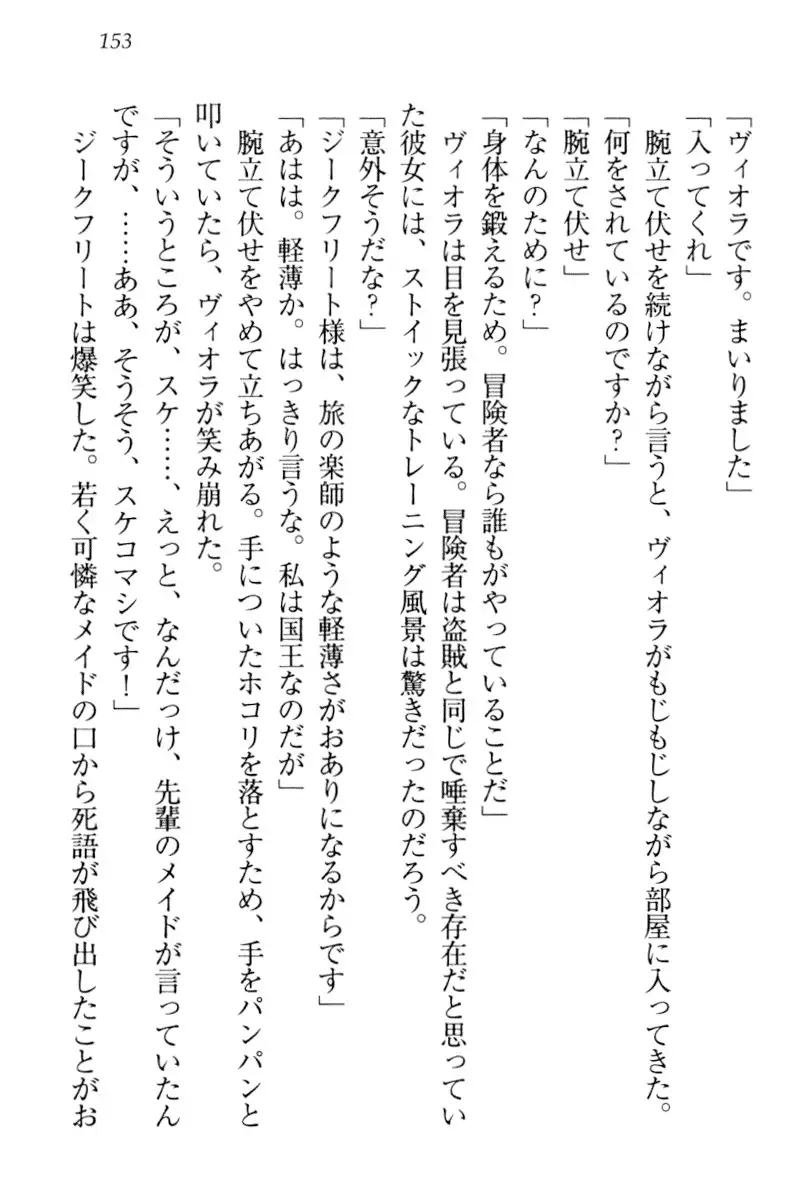 153
「ヴィオラです。まいりました」
「入ってくれ」
　腕立て伏せを続けながら言うと、ヴィオラがもじもじしながら部屋に入ってきた。
「何をされているのですか？」
「腕立て伏せ」
「なんのために？」
「身体を鍛えるため。冒険者なら誰もがやっていることだ」
　ヴィオラは目を見張っている。冒険者は盗賊と同じで唾棄すべき存在だと思ってい
た彼女には、ストイックなトレーニング風景は驚きだったのだろう。
「意外そうだな？」
「ジークフリート様は、旅の楽師のような軽薄さがおありになるからです」
「あはは。軽薄か。はっきり言うな。私は国王なのだが」
　腕立て伏せをやめて立ちあがる。手についたホコリを落とすため、手をパンパンと
叩いていたら、ヴィオラが笑み崩れた。
「そういうところが、スケ……、えっと、なんだっけ、先輩のメイドが言っていたん
ですが、……ああ、そうそう、スケコマシです！」
　ジークフリートは爆笑した。若く可憐なメイドの口から死語が飛び出したことがお